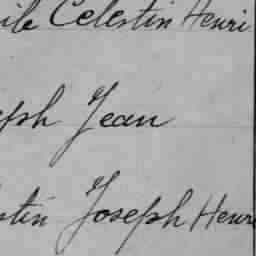 ile Celestin Henri
eph Jean
stin Joseph Henri